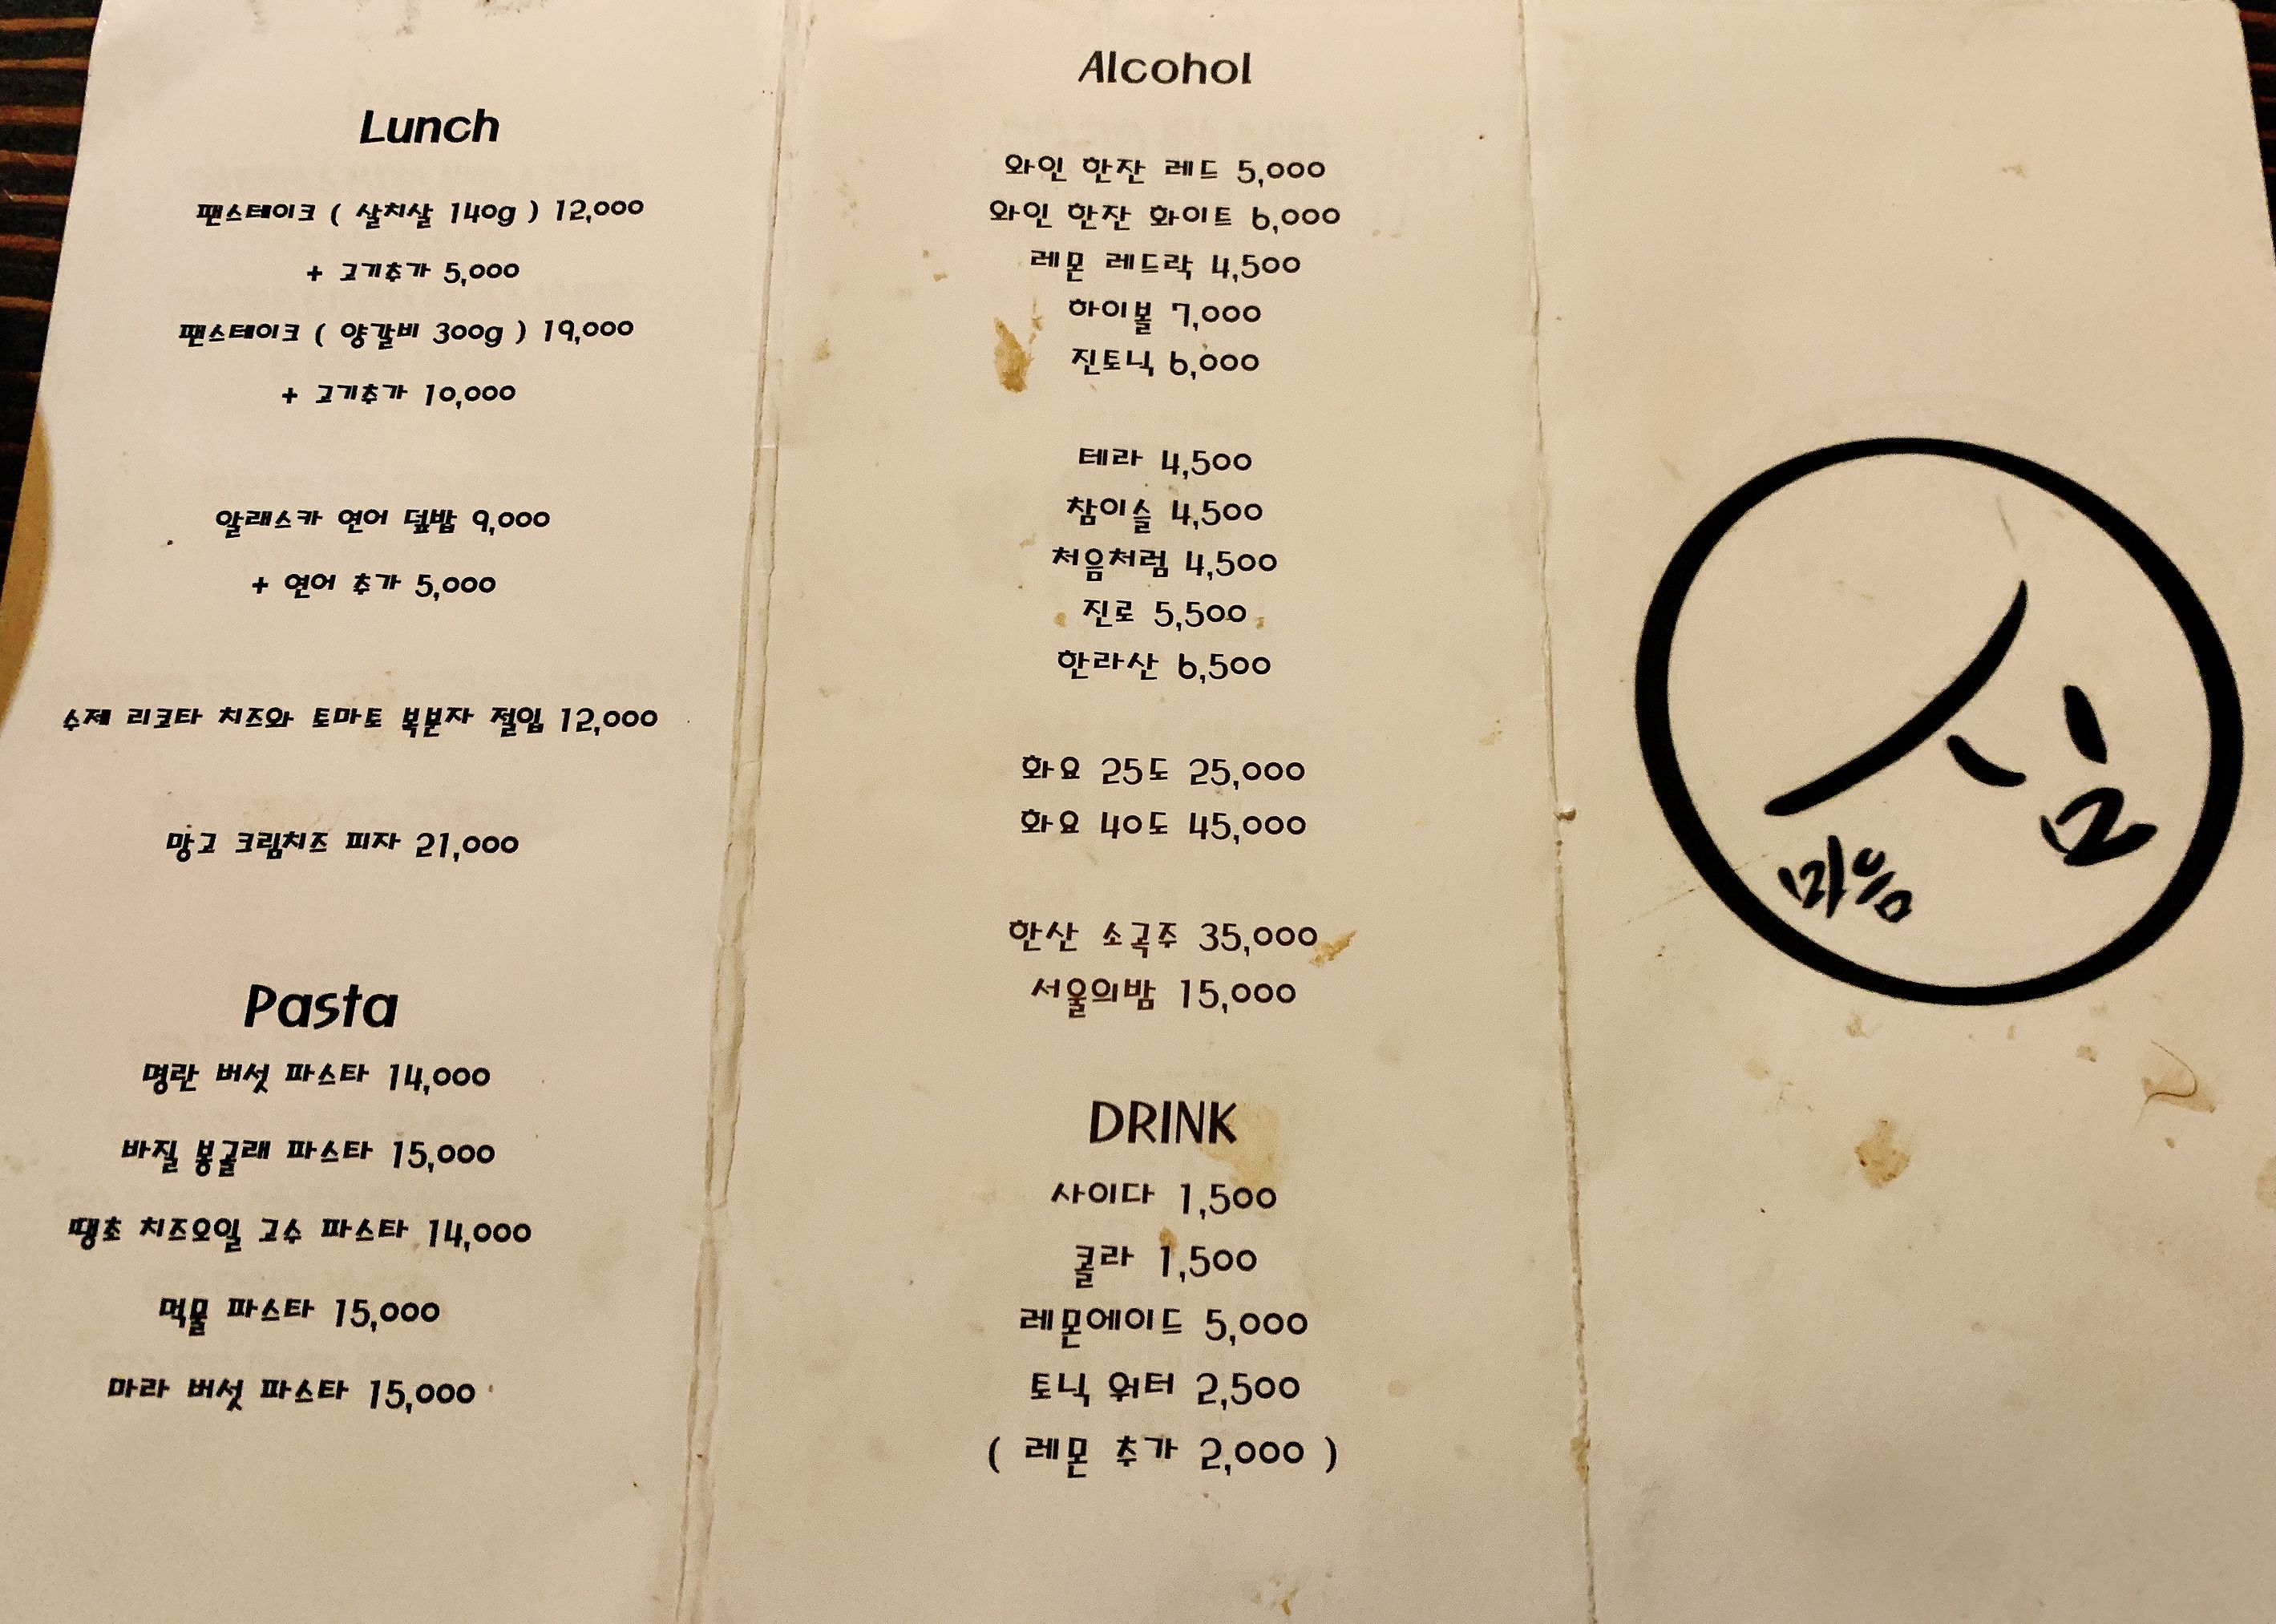 Lunch
팬스테이크 ( 살치살 140g ) 12,000
+ 고기추가 5,000
팬스테이크 ( 양갈비 300g ) 19,000
+ 고기추가 10,000
알래스카 연어 덮밥 9,000
+ 연어 추가 5,000
수제 리코타 치즈와 토마토 복분자 절임 12,000
망고 크림치즈 피자 21,000
Pasta
명란 버섯 파스타 14,000
바질 봉골래 파스타 15,000
땡초 치즈오일 고수 파스타 14,000
먹물 파스타 15,000
마라 버섯 파스타 15,000
Alcohol
와인 한잔 레드 5,000
와인 한잔 화이트 6,000
레몬 레드락 4,500
하이볼 7,000
진토닉 6,000
테라 4,500
참이슬 4,500
처음처럼 4,500
진로 5,500
한라산 6,500
화요 25도 25,000
화요 40도 45,000
한산 소곡주 35,000
서울의밤 15,000
DRINK
사이다 1,500
콜라 1,500
레몬에이드 5,000
토닉 워터 2,500
( 레몬 추가 2,000 )
심
마음